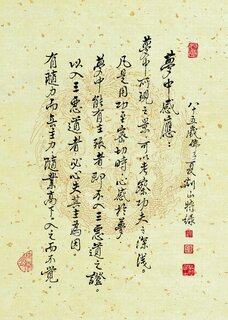 八五歲佛子夏荊山特錄
夢中感應：
夢中所現之景，可以考察功夫之深淺。
凡是用功至密切時，心感於夢
夢中能有主張者即不入三惡道之證。
以入三惡道者，必心失其主為因。
有隨力而無主力，隨業高下入之而不覺。